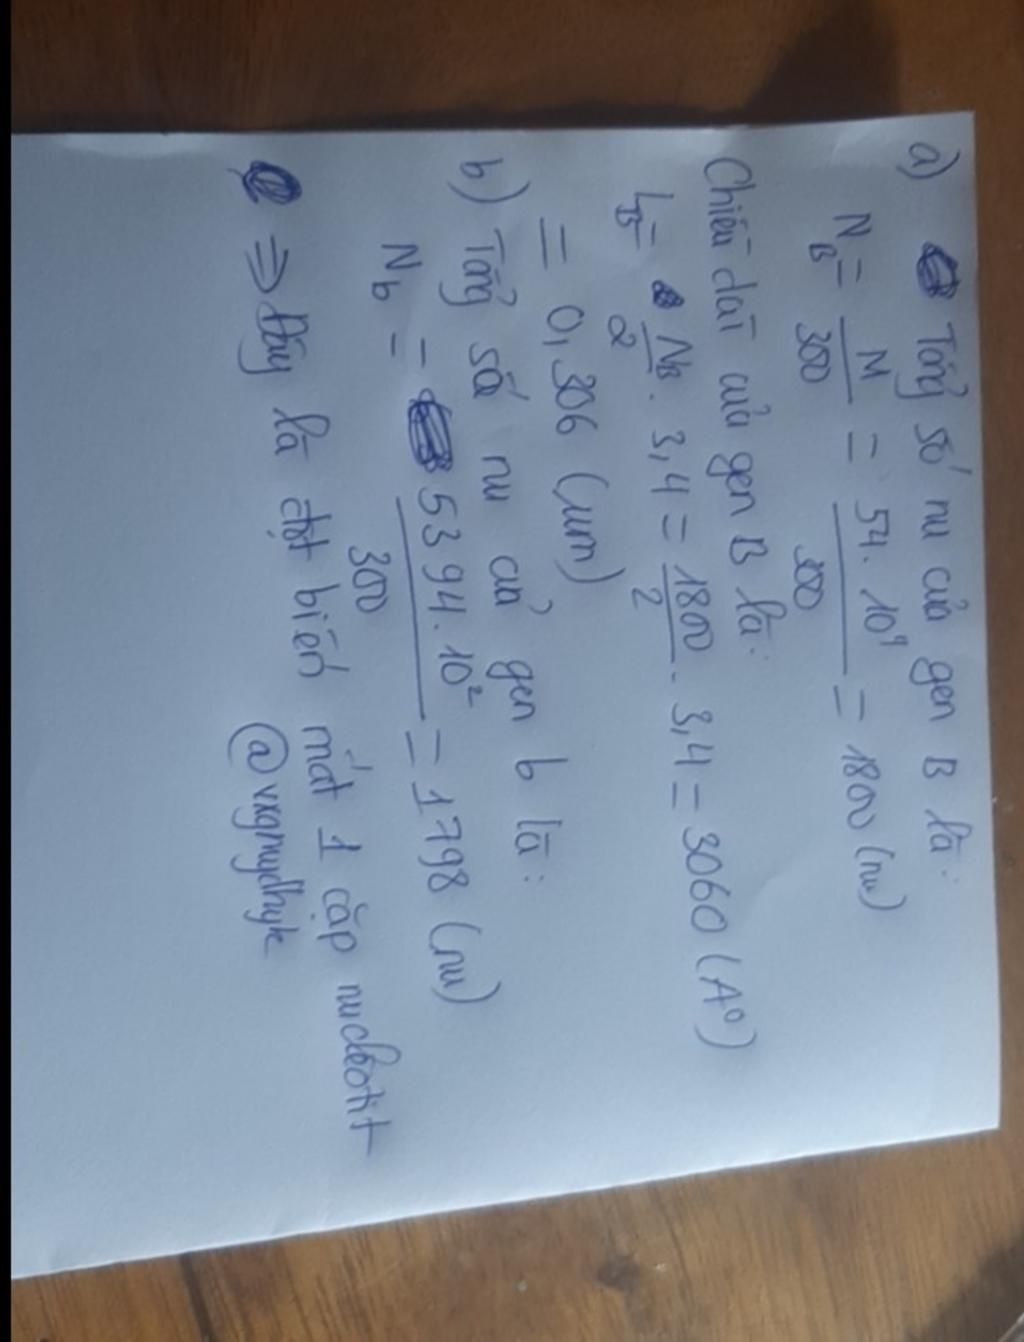 a) Tổng số nu của gen B là:
N_B = M/300 = 54.10⁴/300 = 1800 (nu)
Chiều dài của gen B là:
L_B = N_B/2 . 3,4 = 1800/2 . 3,4 = 3060 (A⁰)
= 0,306 (µm)
b) Tổng số nu của gen b là:
N_b = 5394.10²/300 = 1798 (nu)
⇒ Đây là đột biến mất 1 cặp nucleotit
@vxgmydhyk